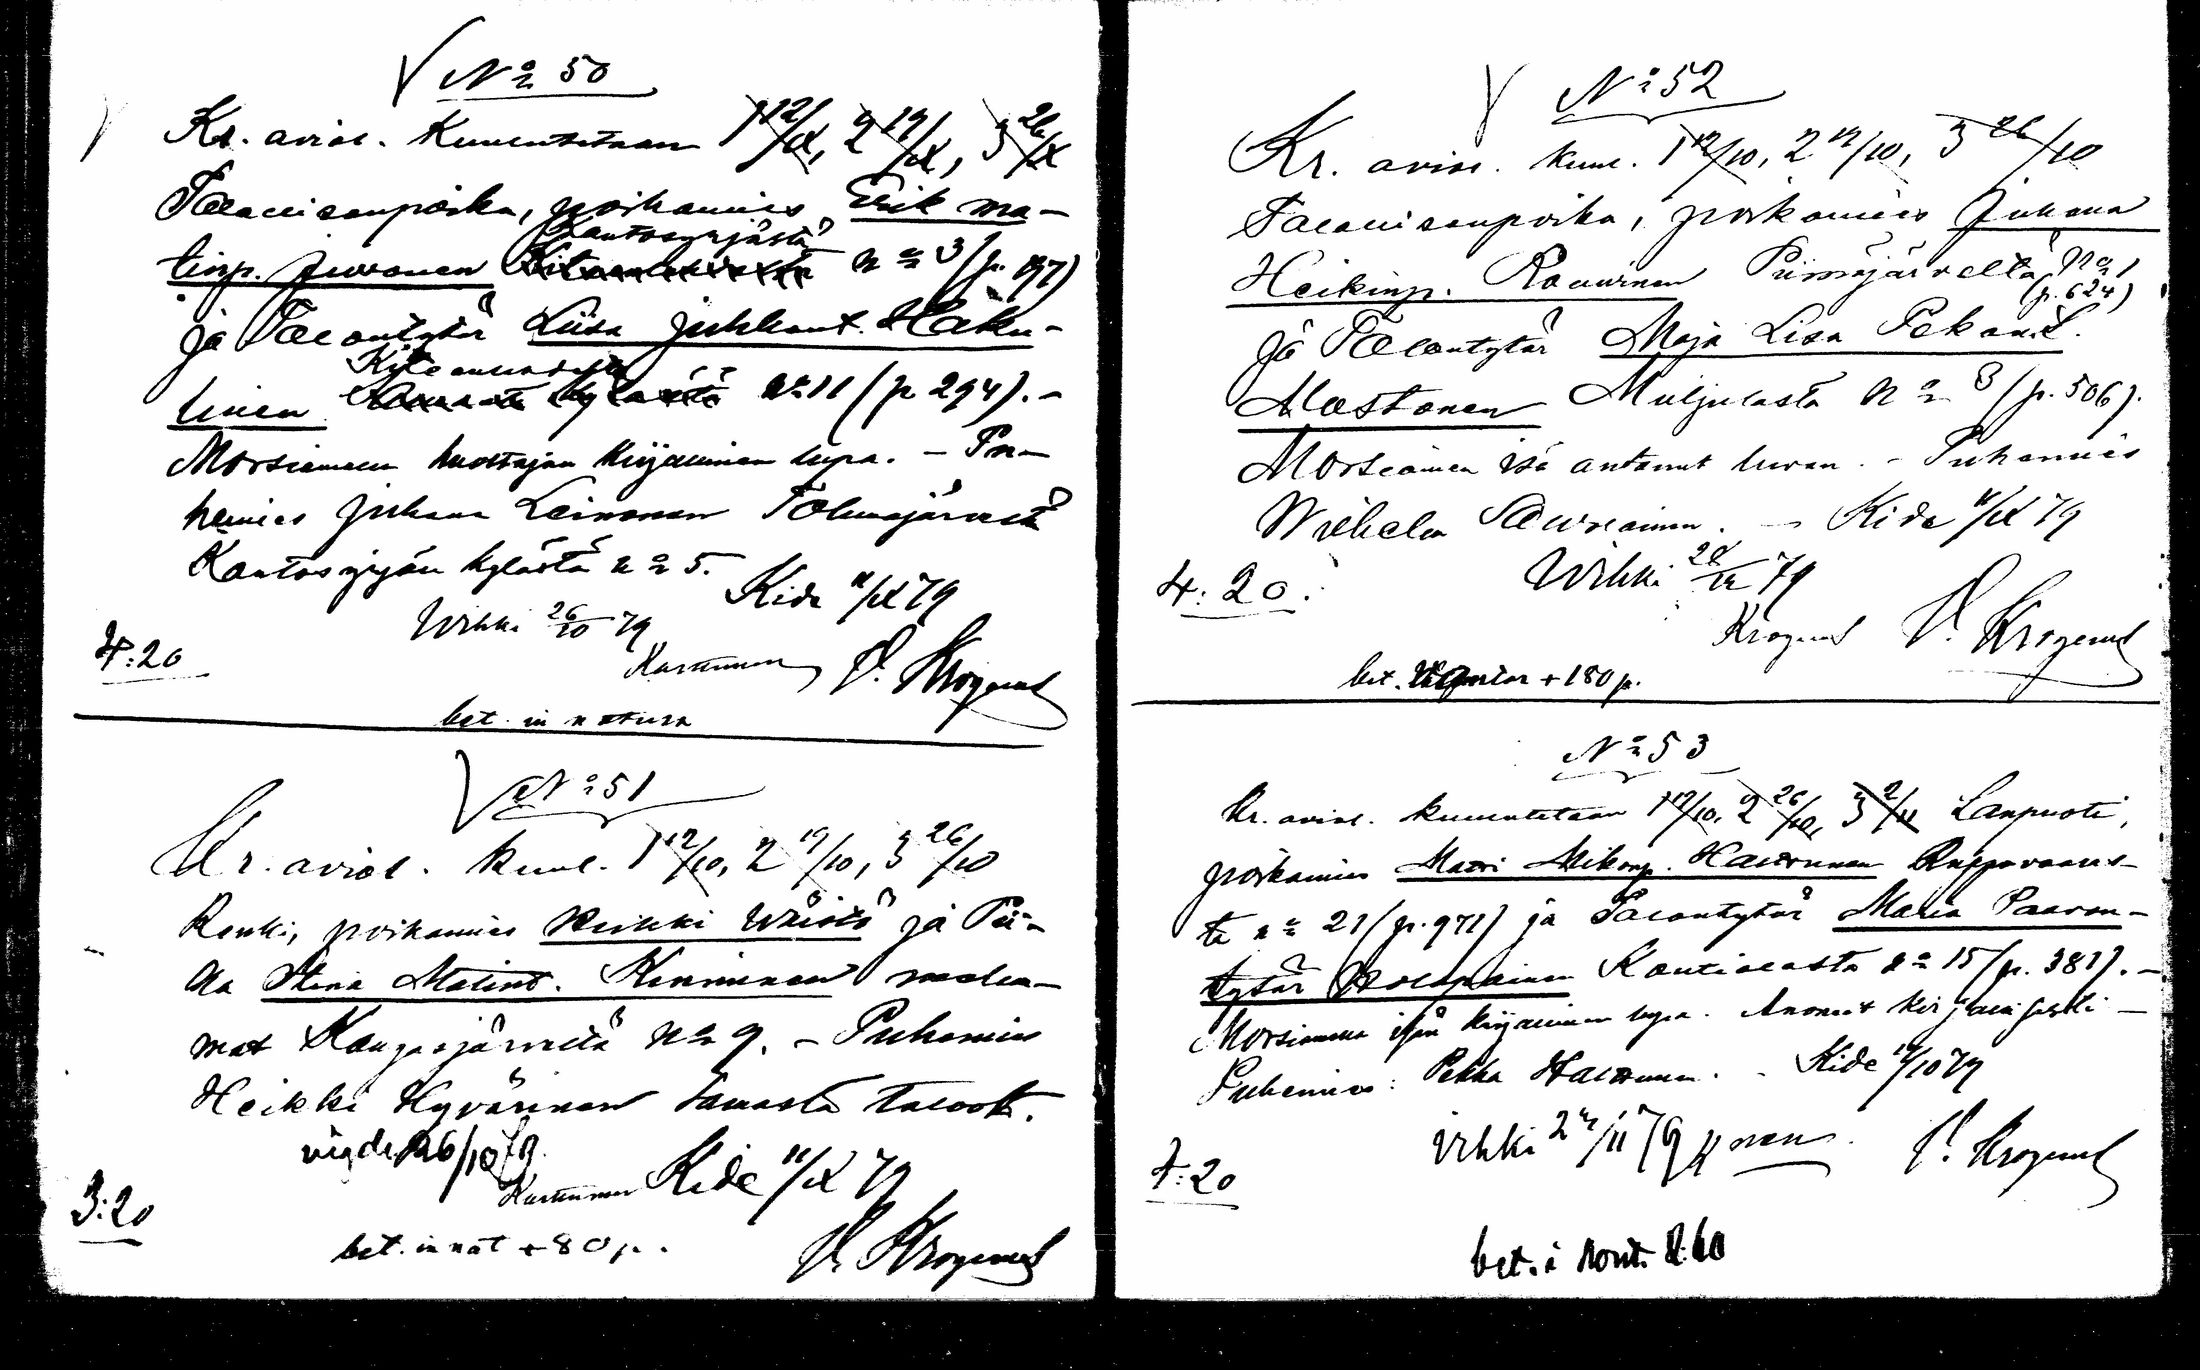 No 50
Kr. aviol. Kuulutetaan 1 12/IX, 2 19/IX, 3 26/IX
Talollisenpoika, poikamies Erik Ma-
Kantosyrjästä
tinp. Juvonen No 3 (p. 197)
ja Talontytär Liisa Juhhant. Haku-
linen No 11 (p 294). -
Morsiamen huoltajan kirjallinen lupa. - Pu-
hemies Juhana Leinonen Tolmajärvestä
Kantosyrjän kylästä No 5.
Kide 11/IX 79
Vihki 26/10 79
4:20
Karttunen
P. Krogerus
bet. in natura
No 51
Kr. aviol. kuul. 1 12/10, 2 19/10, 3 26/10
Renki, poikamies Heikki Wäistö ja Pii-
ka Stina Matint. Kinnunen molem-
mat Kangasjärveltä No 9. - Puhemies
Heikki Hyvärinen samasta talosta.
vigde 26/10 79
Karttunen
Kide 11/IX 79
3:20
bet. in nat + 80 p.
P. Krogerus
No 52
Kr. aviol. kuul. 1 12/10, 2 19/10, 3 26/10
Talollisenpoika, poikamies Juhana
Heikinp. Rouvinen Piimäjärveltä No 1
(p. 624)
ja Talontytär Maja Lisa Pekant.
Mustonen Muljulasta No 3 (p. 506).
Morsiamen isä antanut luvan. - Puhemies
Wilhelm Sauvainen. - Kide 11/IX 79
Vihki 79
4:20.
Krogerus P. Krogerus
bet. + 180 p.
No 53
Kr. aviol. kuulutetaan 1 19/10, 2 26/10, 3 2/11 Lampuoti,
poikamies Matti Mikonp. Hattunen Ruppovaaras-
ta No 21 (p. 971) ja Talontytär Maria Paavon-
tytär Holopainen Kontiolasta No 15 (p. 381). -
Morsiamen isän kirjallinen lupa. Anoneet kirjallisesti -
Puhemies: Pekka Hattunen. - Kide 19/10 79
Vihki 2 /11 79
4:20
P. Krogerus
bet. i kont. 2:60